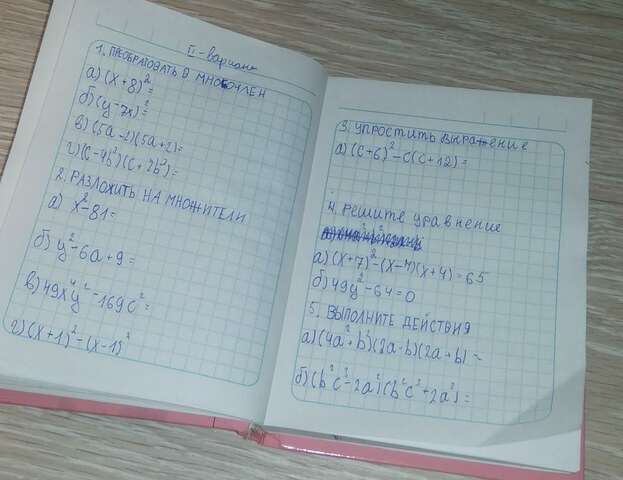 II - вариант
1. ПРЕОБРАЗОВАТЬ В МНОГОЧЛЕН
а) (x+8)²=
б) (y-7x)²=
в) (5a-2)(5a+2)=
г) (c-4b²)(c+4b²)=
2. РАЗЛОЖИТЬ НА МНОЖИТЕЛИ
а) x²-81=
б) y²-6a+9=
в) 49x⁴y²-169c²=
г) (x+1)²-(x-1)²
3. УПРОСТИТЬ ВЫРАЖЕНИЕ
а) (c+6)²-c(c+12)=
4. РЕШИТЕ УРАВНЕНИЕ
а) (x+7)²-(x-4)(x+4)=65
б) 49y²-64=0
5. ВЫПОЛНИТЕ ДЕЙСТВИЯ
а) (4a²+b²)(2a-b)(2a+b)=
б) (b²c³-2a²)(b²c³+2a²)=